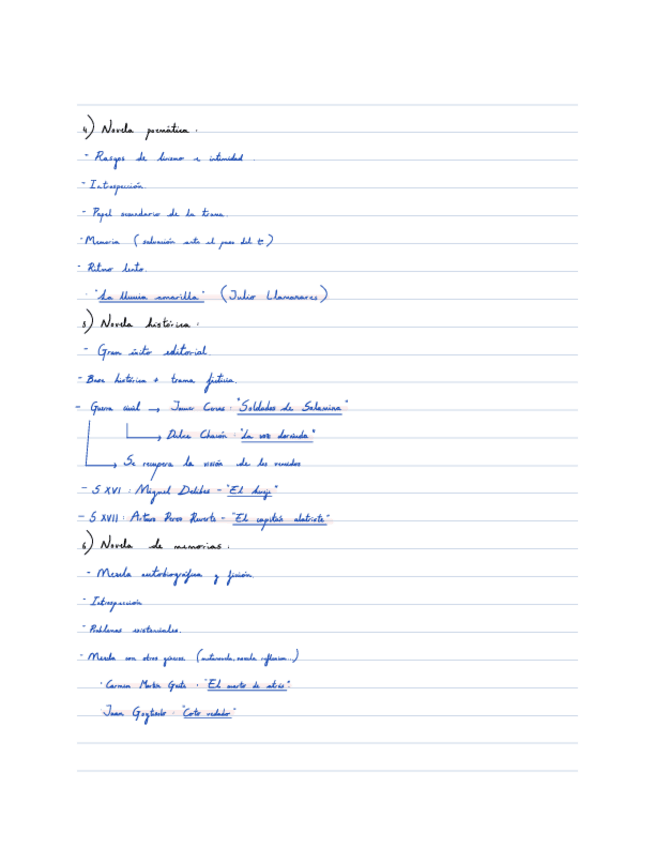 4) Novela poemática:
- Rasgos de lirismo e intimidad.
- Introspección
- Papel secundario de la trama.
- Memoria (salvación ante el paso del t)
- Ritmo lento.
· "La lluvia amarilla" (Julio Llamazares)
5) Novela histórica:
- Gran éxito editorial.
- Base histórica + trama ficticia.
- Guerra civil → Javier Cercas: "Soldados de Salamina"
Dulce Chacón: "La voz dormida"
Se recupera la visión de los vencidos
- S XVI: Miguel Delibes - "El hereje"
- S XVII: Arturo Perez Reverte - "El capitán alatriste"
6) Novela de memorias:
- Mezcla autobiográfica y ficción.
- Introspección
- Problemas existenciales.
- Mezcla con otros géneros. (autonovela, novela reflexion...)
· Carmen Martín Gaite: "El cuarto de atrás".
· Juan Goytisolo: "Coto vedado"